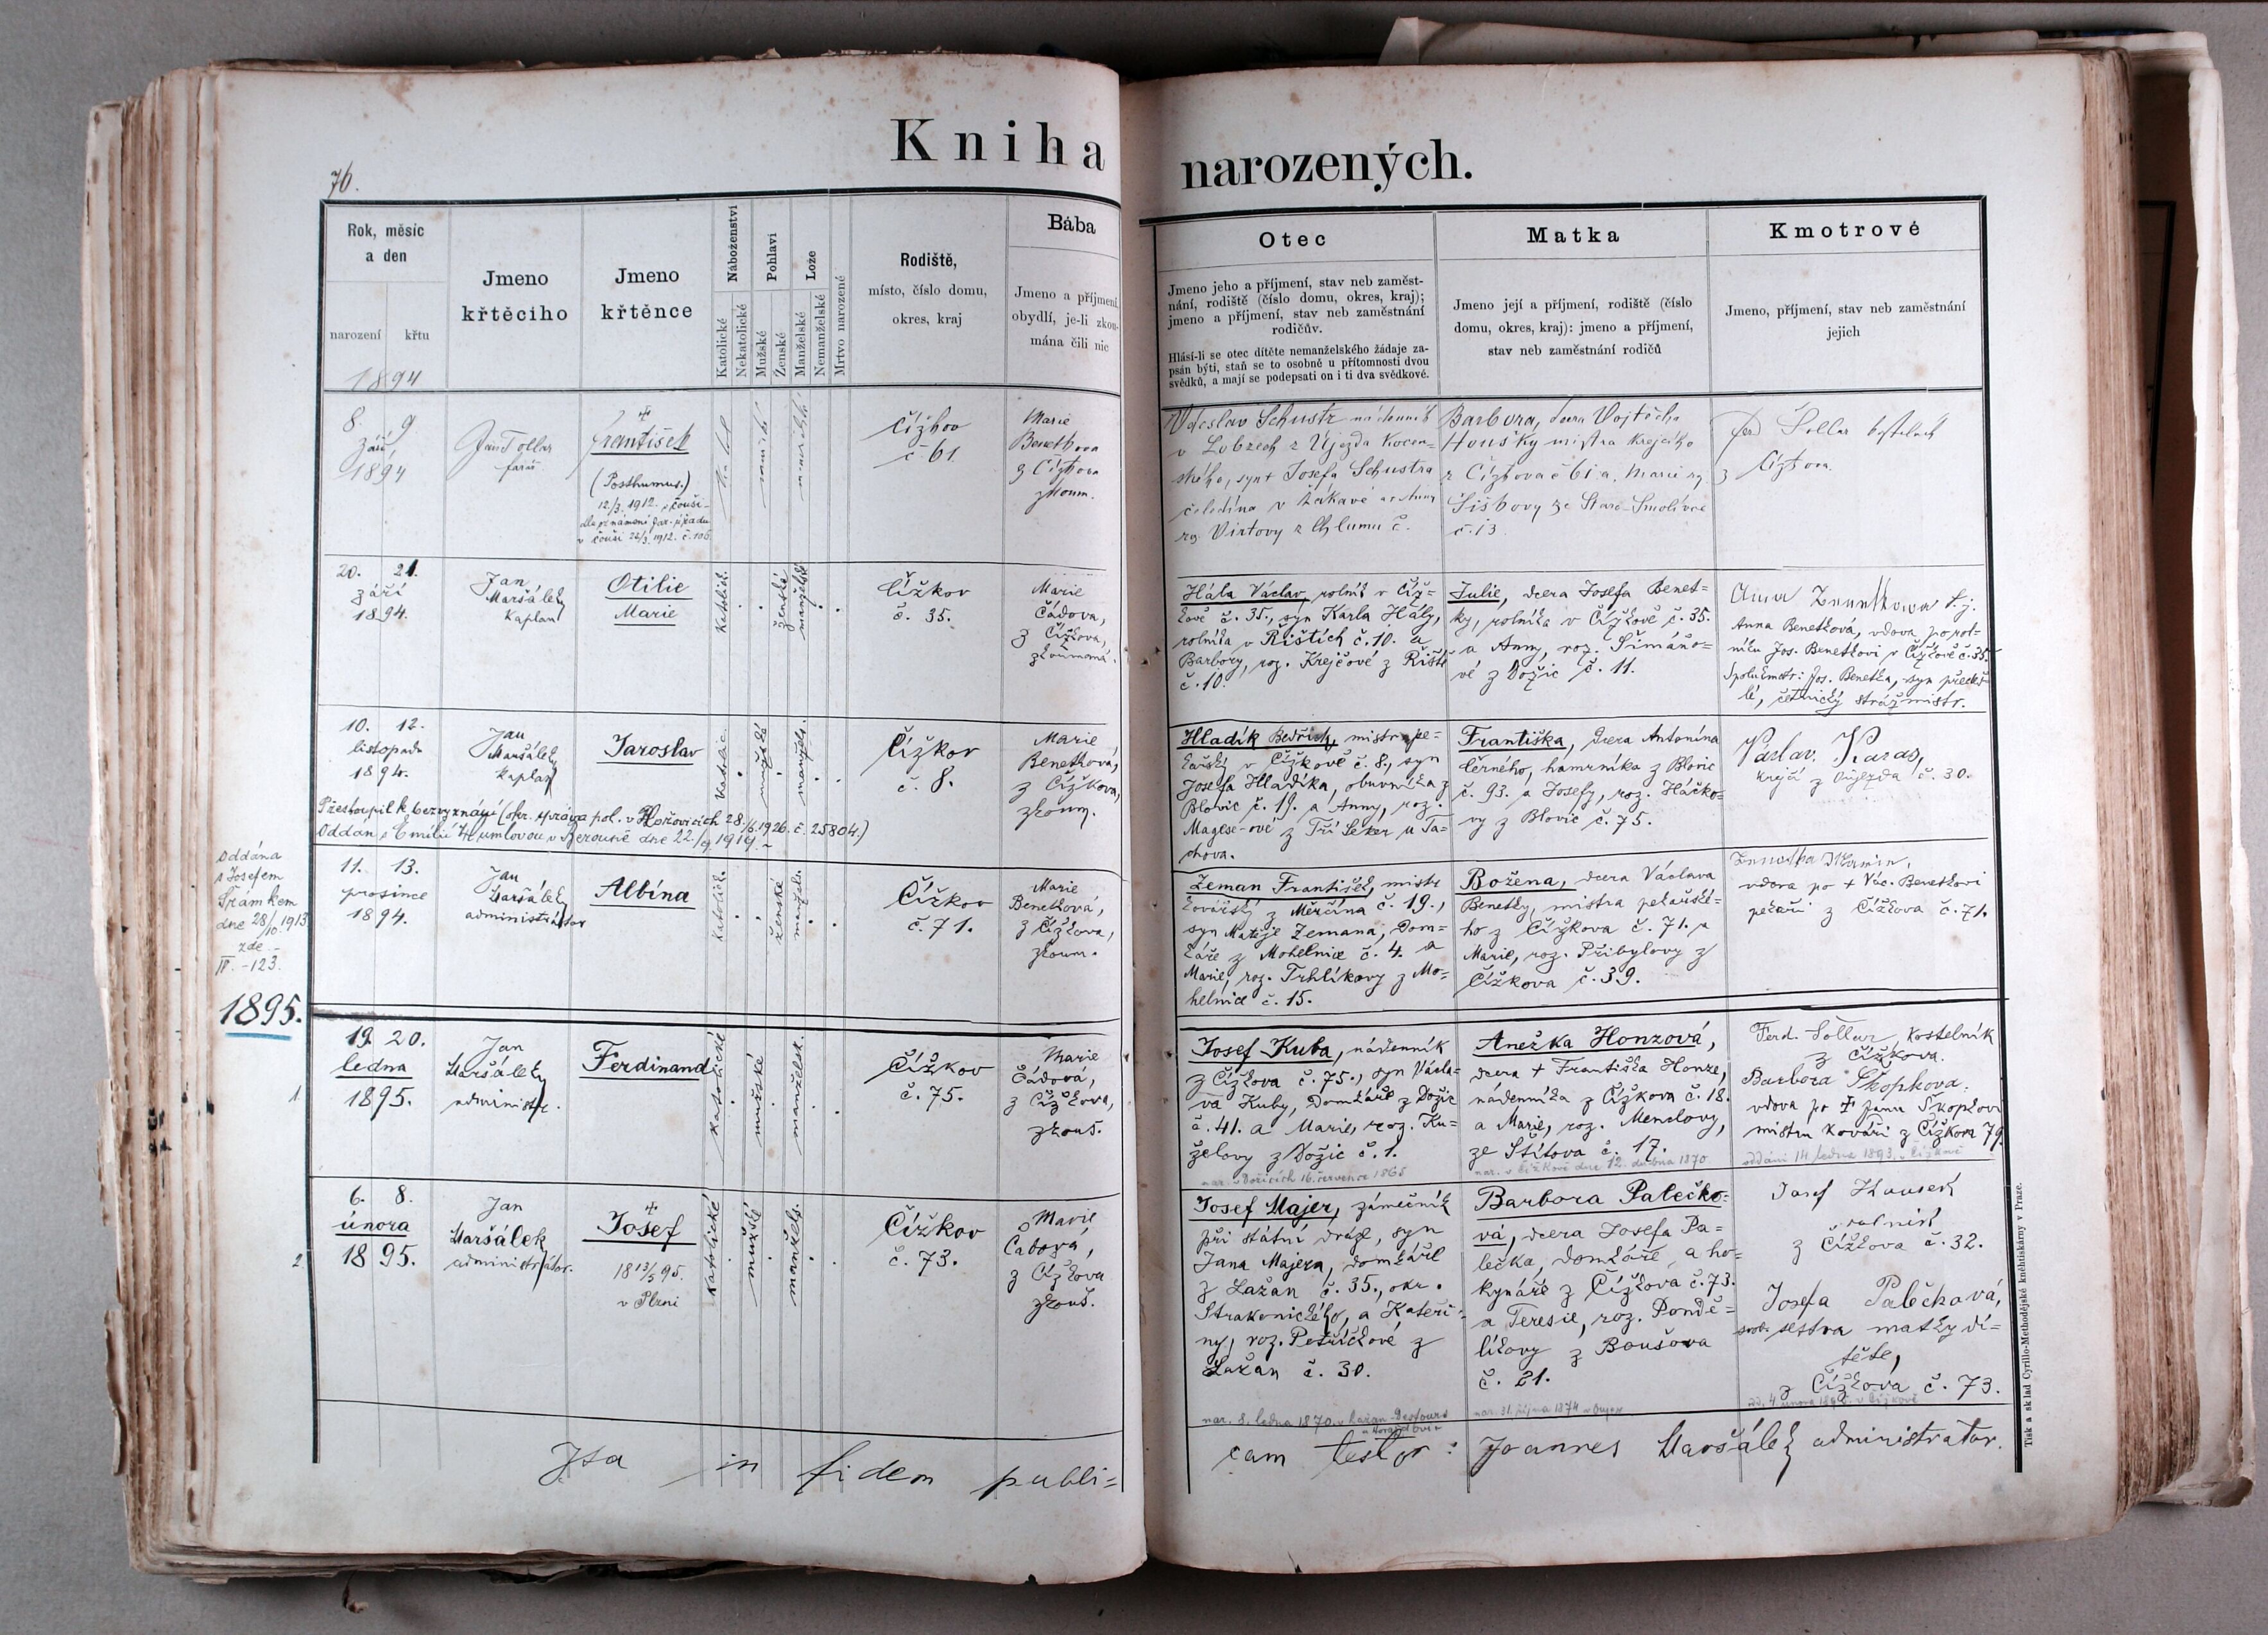 Kniha narozených.
76.
Rok, měsíc
a den
narození křtu
1894
Jmeno
křtěcího
Jmeno
křtěnce
Náboženství
Katolické
Nekatolické
Pohlaví
Mužské
Ženské
Lože
Manželské
Nemanželské
Mrtvo narozené
Rodiště,
místo, číslo domu,
okres, kraj
Bába
Jmeno a příjmení,
obydlí, je-li zkou-
mána čili nic
Otec
Jmeno jeho a příjmení, stav neb zaměst-
nání, rodiště (číslo domu, okres, kraj);
jmeno a příjmení, stav neb zaměstnání
rodičův.
Hlásí-li se otec dítěte nemanželského žádaje za-
psán býti, staň se to osobně u přítomnosti dvou
svědků, a mají se podepsati on i ti dva svědkové.
Matka
Jmeno její a příjmení, rodiště (číslo
domu, okres, kraj): jmeno a příjmení,
stav neb zaměstnání rodičů
Kmotrové
Jmeno, příjmení, stav neb zaměstnání
jejich
8. 9
září
1894
farář
František
(Posthumus.)
12/3. 1912.
v 22/3. 1912. č. 106
Čížkov
č 61
Marie
Benetkova
z Čížkova
zkoum.
Schustr nádenník
v z Újezda
syn + Josefa Schustra
čeledína v Žákavé a Anny
roz. z Chlumu č.
Barbora, dcera Vojtěcha
Houšky mistra krejčího
z Čížkova č 61 a Marie roz.
Šiškovy ze Staré-Smolivce
č. 13
z Čížkova.
20. 21.
září
1894.
Jan
Maršálek
kaplan
Otilie
Marie
Katolick.
ženské
manželsk
Čížkov
č. 35.
Marie
Čádova,
z Čížkova,
zkoumaná.
Hála Václav, rolník v Číž-
kově č. 35., syn Karla Hály,
rolníka v Řištích č. 10. a
Barbory, roz. Krejčové z Řiště
č. 10.
Julie, dcera Josefa Benet-
ky, rolníka v Čížkově č. 35.
a Anny, roz. Šimáňo-
vé z Dožic č. 11.
Anna t. j.
Anna Benetková, vdova po rol-
níku Jos. Benetkovi v Čížkově č. 35.
Spolukmotr: Jos. Benetka, syn předešlé,
četnický strážmistr.
10. 12.
listopadu
1894.
Jan
Maršálek
kaplan
Jaroslav
Katolic.
mužské
manžels.
Čížkov
č. 8.
Marie
Benetková,
z Čížkova,
zkoum.
Hladík Bedřich, mistr pe-
kařský v Čížkově č. 8., syn
Josefa Hladíka, obuvníka z
Blovic č. 19. a Anny, roz.
z Tří Seker u Ta-
chova.
Františka, dcera Antonína
Černého, hamrníka z Blovic
č. 93. a Josefy, roz. Háčko-
vy z Blovic č. 75.
Václav Karas,
krejčí z Oujezda č. 30.
Přestoupil k bezvyznání (okr. správa pol. v Hořovicích 28./6. 1926. č. 25804.)
Oddán s Emilií Humlovou v Berouně dne 22./9. 1919.
Oddána
s Josefem
Šrámkem
dne 28/10. 1913
zde -
IV. - 123.
11. 13.
prosince
1894.
Jan
Maršálek
administrátor
Albína
Katolick.
ženské
manžel.
Čížkov
č. 71.
Marie
Benetková,
z Čížkova,
zkoum.
Zeman František, mistr
kovářský z Měrčína č. 19.,
syn Matěje Zemana, dom-
káře z Mohelnice č. 4. a
Marie, roz. Trhlíkovy z Mo-
helnice č. 15.
Božena, dcera Václava
Benetky, mistra pekařské-
ho z Čížkova č. 71. a
Marie, roz. Přibylovy z
Čížkova č. 39.
vdova po + Vác. Benetkovi
pekaři z Čížkova č. 71.
1895.
1
19. 20.
ledna
1895.
Jan
Maršálek
administr.
Ferdinand
katolické
mužské
manželsk.
Čížkov
č. 75.
Marie
Čádová,
z Čížkova,
zkouš.
Josef Kuba, nádenník
z Čížkova č. 75., syn Václa-
va Kuby, domkáře z Dožic
č. 41. a Marie, roz. Ku-
želovy z Dožic č. 1.
nar. v Dožicích 16. července 1868
Anežka Honzová,
dcera + Františka Honze,
nádenníka z Čížkova č. 18.
a Marie, roz. Menclovy,
ze Štítova č. 17.
nar. v Čížkově dne 12. dubna 1870
Ferd. Sollar, kostelník
z Čížkova.
Barbora Škopkova.
vdova po + Janu Škopkovi
mistru kováři z Čížkova 79
oddáni 14 ledna 1893. v Čížkově
2
6. 8.
února
1895.
Jan
Maršálek
administrátor.
Josef
18 13/5 95.
v Plzni
katolické
mužské
manžels.
Čížkov
č. 73.
Marie
Čadová,
z Čížkova
zkouš.
Josef Majer, zámečník
při státní dráze, syn
Jana Majera, domkáře
z Lažan č. 35., okr.
Strakonického, a Kateři-
ny, roz. Petříčkové z
Lažan č. 30.
nar. 8. ledna 1870. v Lažan-Desfours
Barbora Palečko-
vá, dcera Josefa Pa-
lečka, domkáře, a ho-
kynáře z Čížkova č. 73.
a Teresie, roz. Pondě-
líkovy z Boušova
č. 21.
nar. 31. října 1874
Josef Hauser
rolník
z Čížkova č. 32.
Josefa Palečková,
svob. sestra matky dí-
těte,
z Čížkova č. 73.
Ita in fidem publi-
cam testor: Joannes Maršálek administrator.
Tisk a sklad Cyrillo-Methodějské knihtiskárny v Praze.